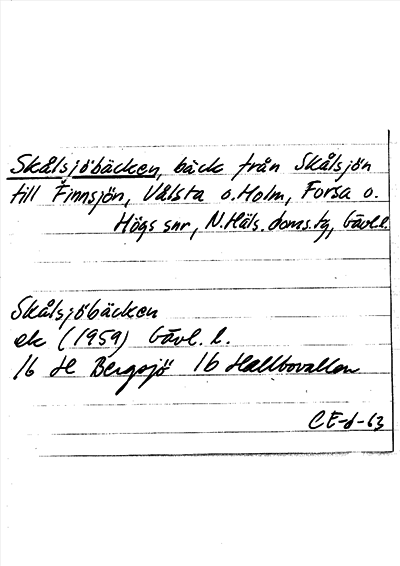 Skålsjöbäcken, bäck från Skålsjön
till Finnsjön, Vålsta o. Holm, Forsa o.
Högs snr, N. Häls. doms.tg, Gävl.l.
Skålsjöbäcken
ek (1959) Gävl. l.
16 H Bergsjö 1b Hallbovallen
CE-d-63